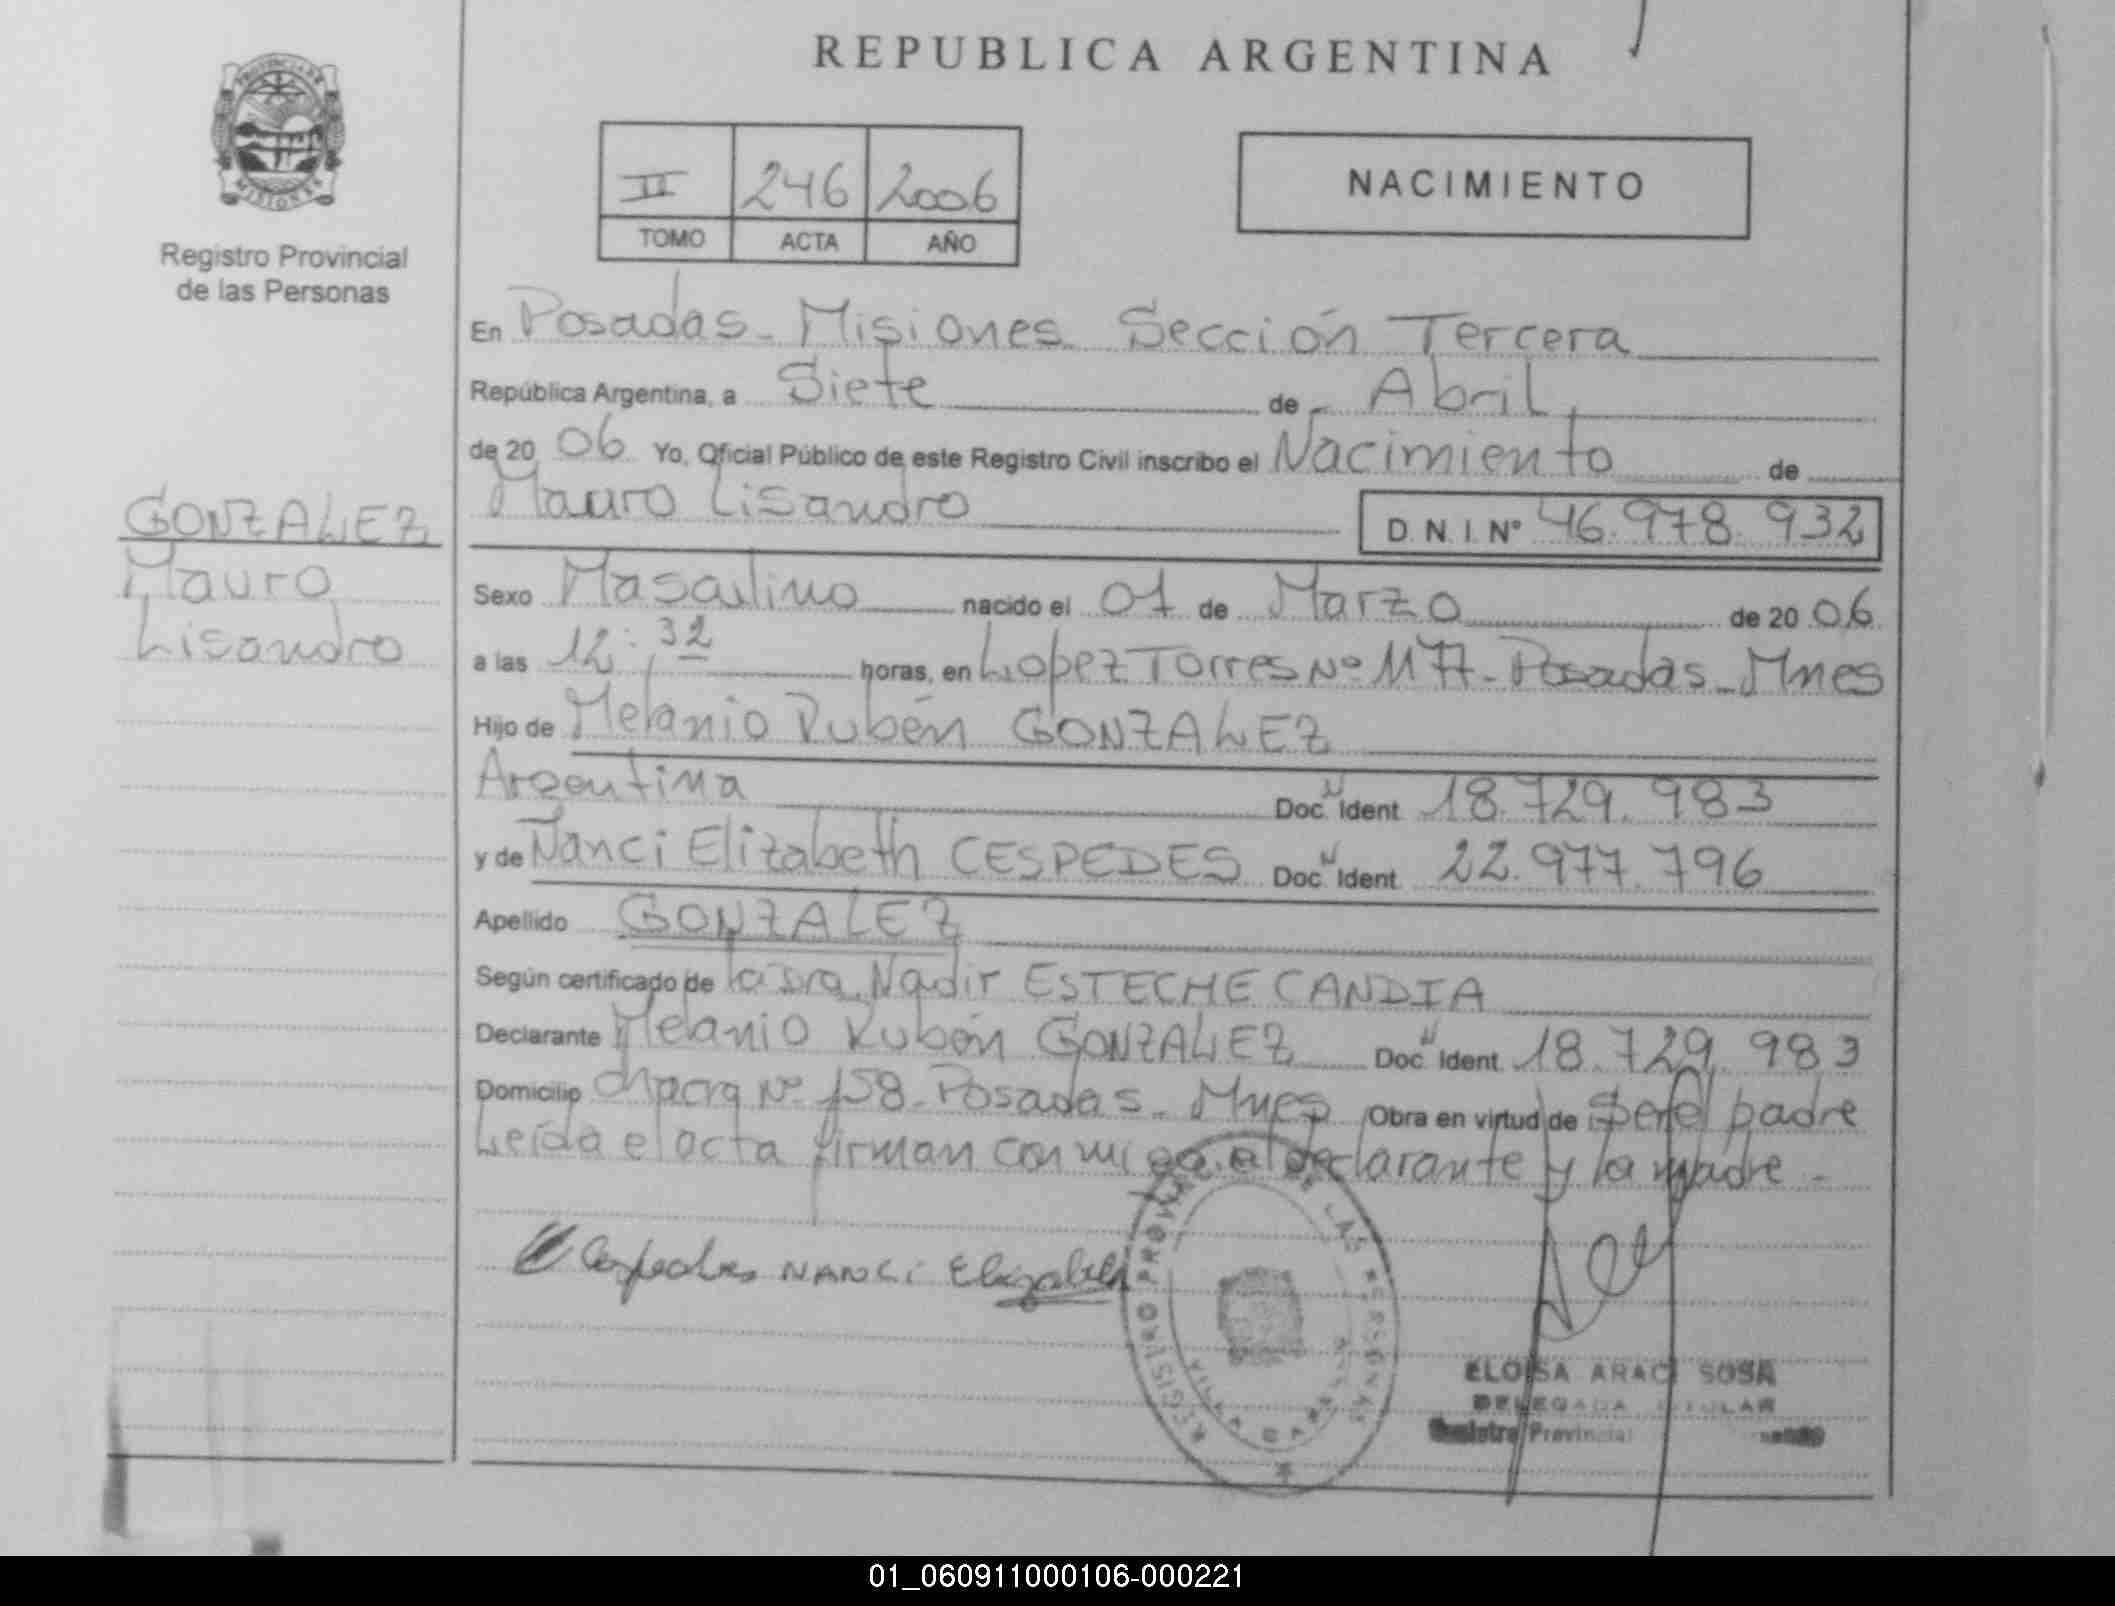 REPUBLICA ARGENTINA
PROVINCIA DE
MISIONES
Registro Provincial
de las Personas
II 246 2006
TOMO ACTA AÑO
NACIMIENTO
En Posadas - Misiones Sección Tercera
República Argentina, a Siete de Abril,
de 2006 Yo, Oficial Público de este Registro Civil inscribo el Nacimiento de
Mauro Lisandro D.N.I. Nº 46.978.932
GONZALEZ
Mauro
Lisandro
Sexo Masculino nacido el 01 de Marzo de 2006
a las 12:32 horas, en Lopez Torres Nº 1177 - Posadas - Mnes
Hijo de Melanio Rubén GONZALEZ
Argentina Doc. N Ident 18.729.983
y de Nanci Elizabeth CESPEDES Doc. N Ident 22.977.796
Apellido GONZALEZ
Según certificado de la Sra. Nadir ESTECHE CANDIA
Declarante Melanio Rubén GONZALEZ Doc. N Ident 18.729.983
Domicilio Chacra Nº 158 - Posadas - Mnes Obra en virtud de ser el padre
Leída el acta firman conmigo el declarante y la madre -
Cespedes NANCI Elizabeth
REGISTRO PROVINCIAL DE LAS PERSONAS
VILLA CABELLO
ELOISA ARACI SOSA
DELEGADA TITULAR
Registro Provincial
01_060911000106-000221